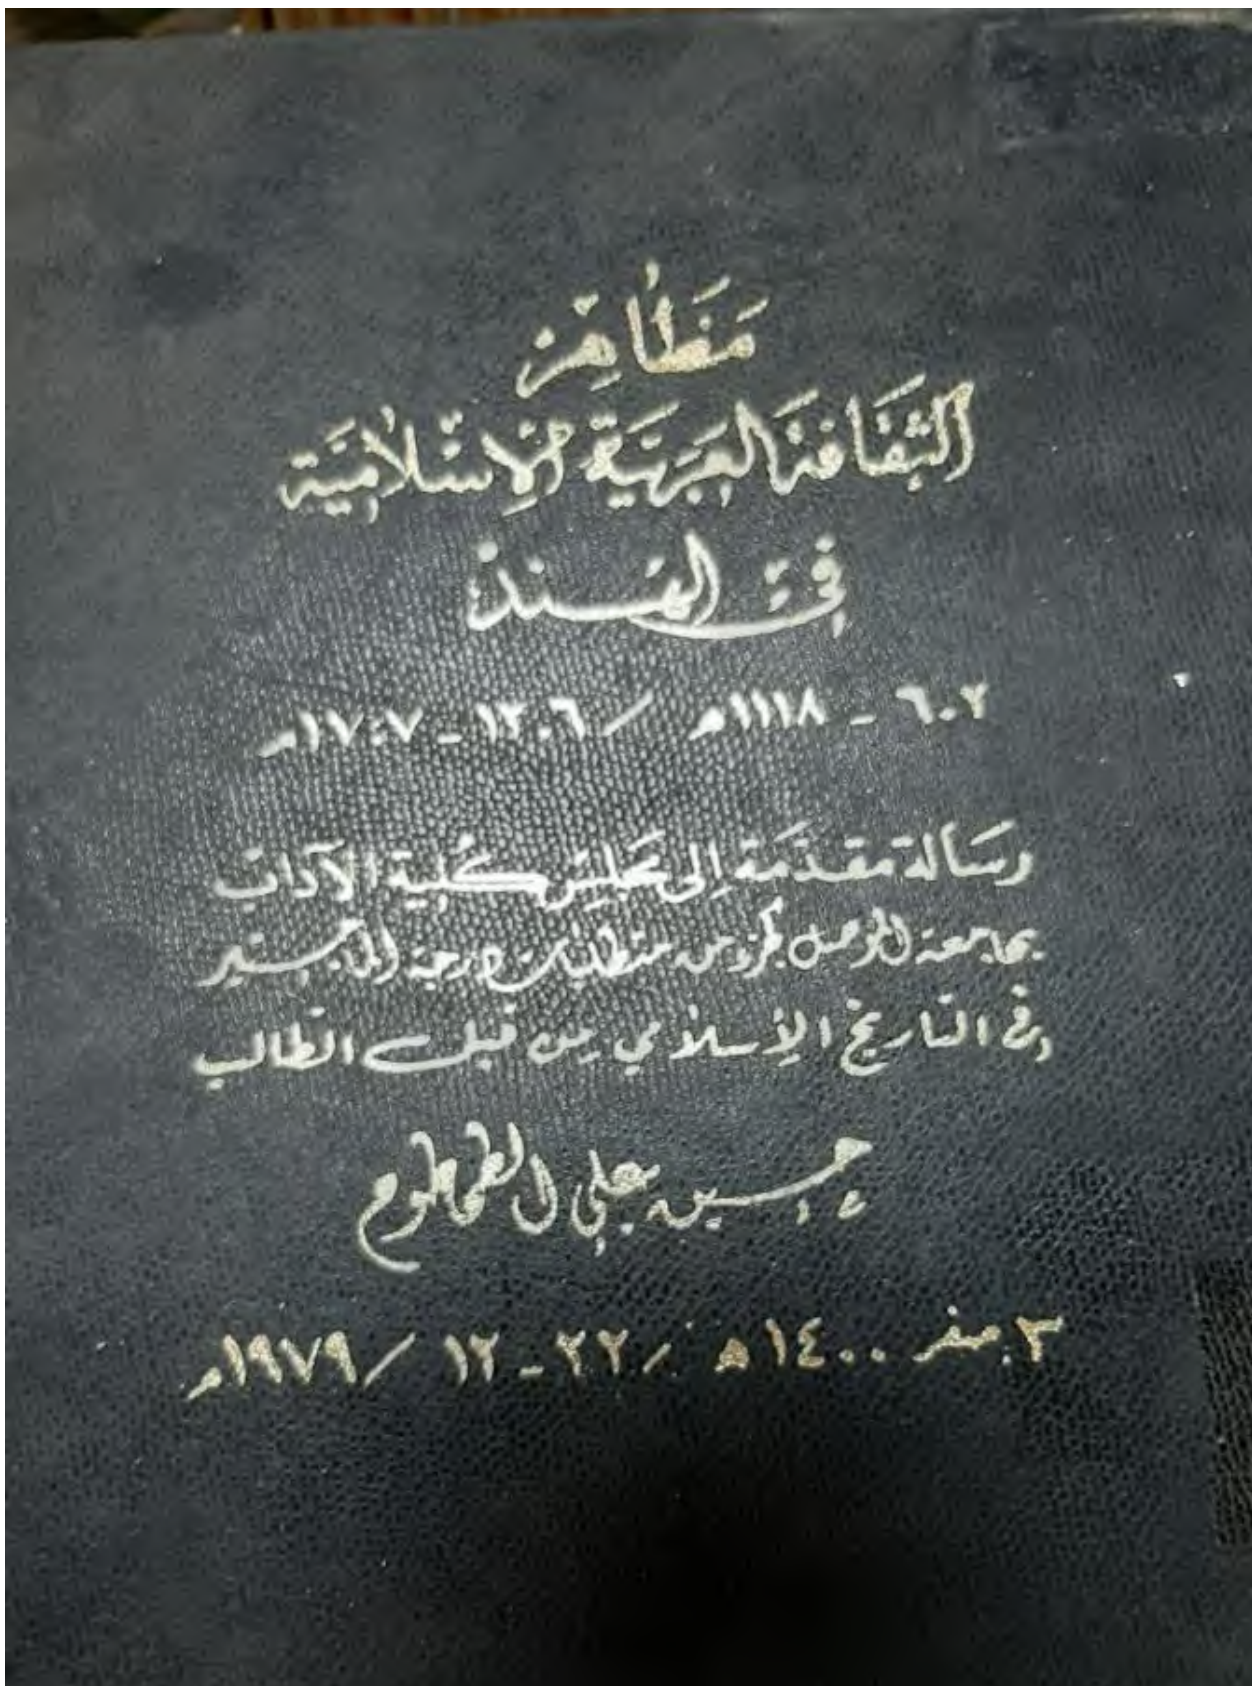 مظاهر
الثقافة العربية الإسلامية
في الهند
٦٠٢ - ١١١٨م / ١٢٠٦ - ١٧٠٧م
رسالة مقدمة إلى مجلس كلية الآداب
بجامعة الموصل كجزء من متطلبات درجة الماجستير
في التاريخ الإسلامي من قبل الطالب
حسين علي الطحطوح
٣ صفر ١٤٠٠ هـ / ٢٢ - ١٢ / ١٩٧٩م